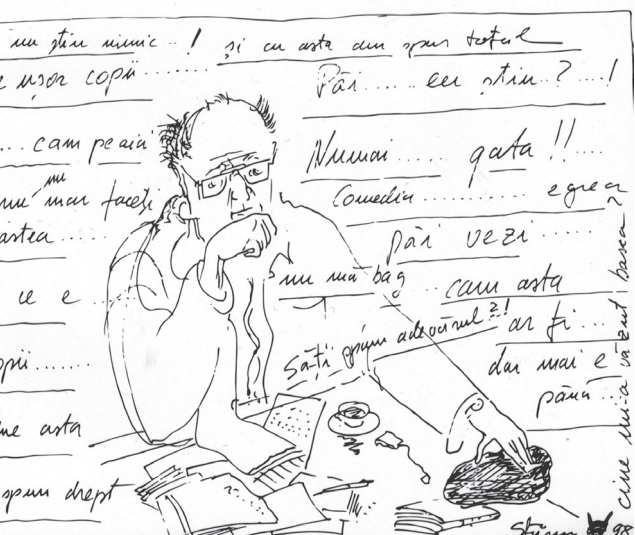 nu știu nimic..! și cu asta am spus totul
e ușor copii.......
Păi..... eu știu?....!
... cam pe aia
Numai..... gata!!....
nu
mai faceți
Comedia........... e grea
astea.....
păi vezi.....
ce e...
nu mă bag
cam asta
Să-ți spun adevărul?!
ar fi...
copii.....
dar mai e
până...
asta
spun drept
cine mi-a văzut basca?
98